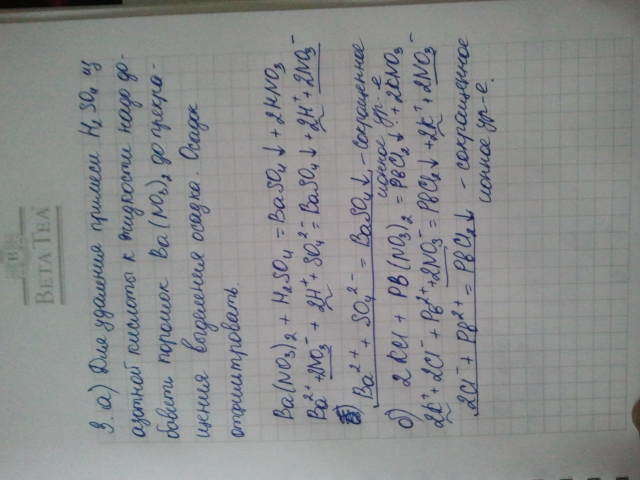 B
BETA TEA
3. а) Для удаления примеси H₂SO₄ из
азотной кислоты к жидкости надо до-
бавить порошок Ba(NO₃)₂ до прекра-
щения выделения осадка. Осадок
отфильтровать.
Ba(NO₃)₂ + H₂SO₄ = BaSO₄↓ + 2HNO₃
Ba²⁺ + 2NO₃⁻ + 2H⁺ + SO₄²⁻ = BaSO₄↓ + 2H⁺ + 2NO₃⁻
Ba²⁺ + SO₄²⁻ = BaSO₄↓ – сокращенное
ионное ур-е
б) 2KCl + Pb(NO₃)₂ = PbCl₂↓ + 2KNO₃
2K⁺ + 2Cl⁻ + Pb²⁺ + 2NO₃⁻ = PbCl₂↓ + 2K⁺ + 2NO₃⁻
2Cl⁻ + Pb²⁺ = PbCl₂↓ – сокращенное
ионное ур-е.